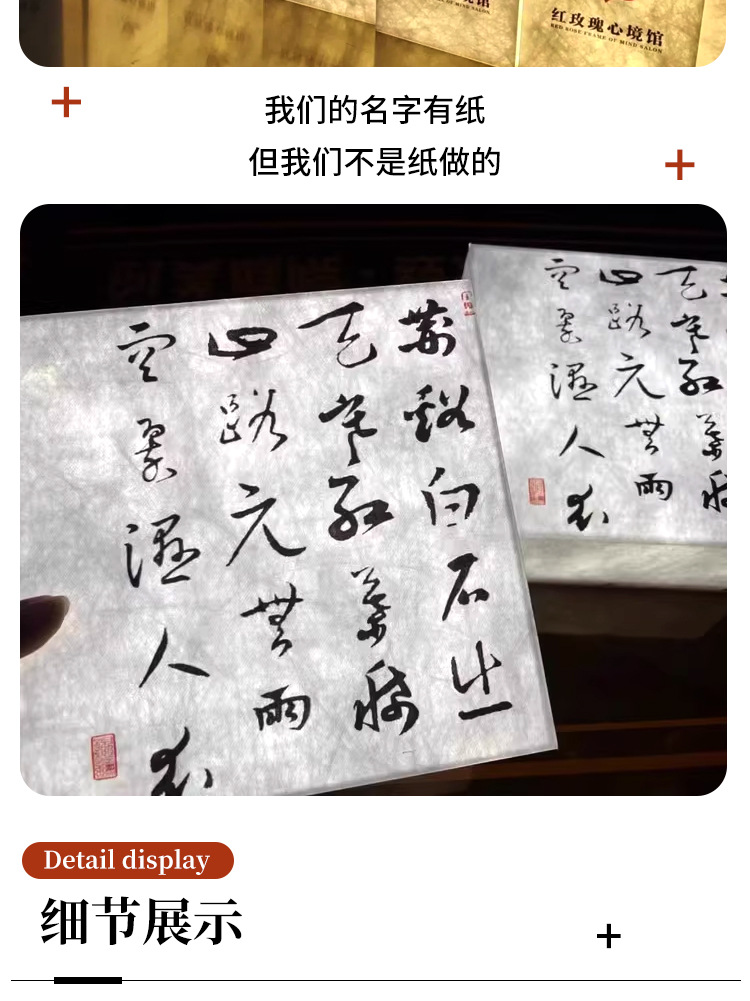 红玫瑰心境馆
RED ROSE FRAME OF MIND SALON
我们的名字有纸
但我们不是纸做的
荆谿白石出
天寒红葉稀
山路元無雨
空翠濕人衣
天寒红葉稀
山路元無雨
空翠濕人衣
Detail display
细节展示